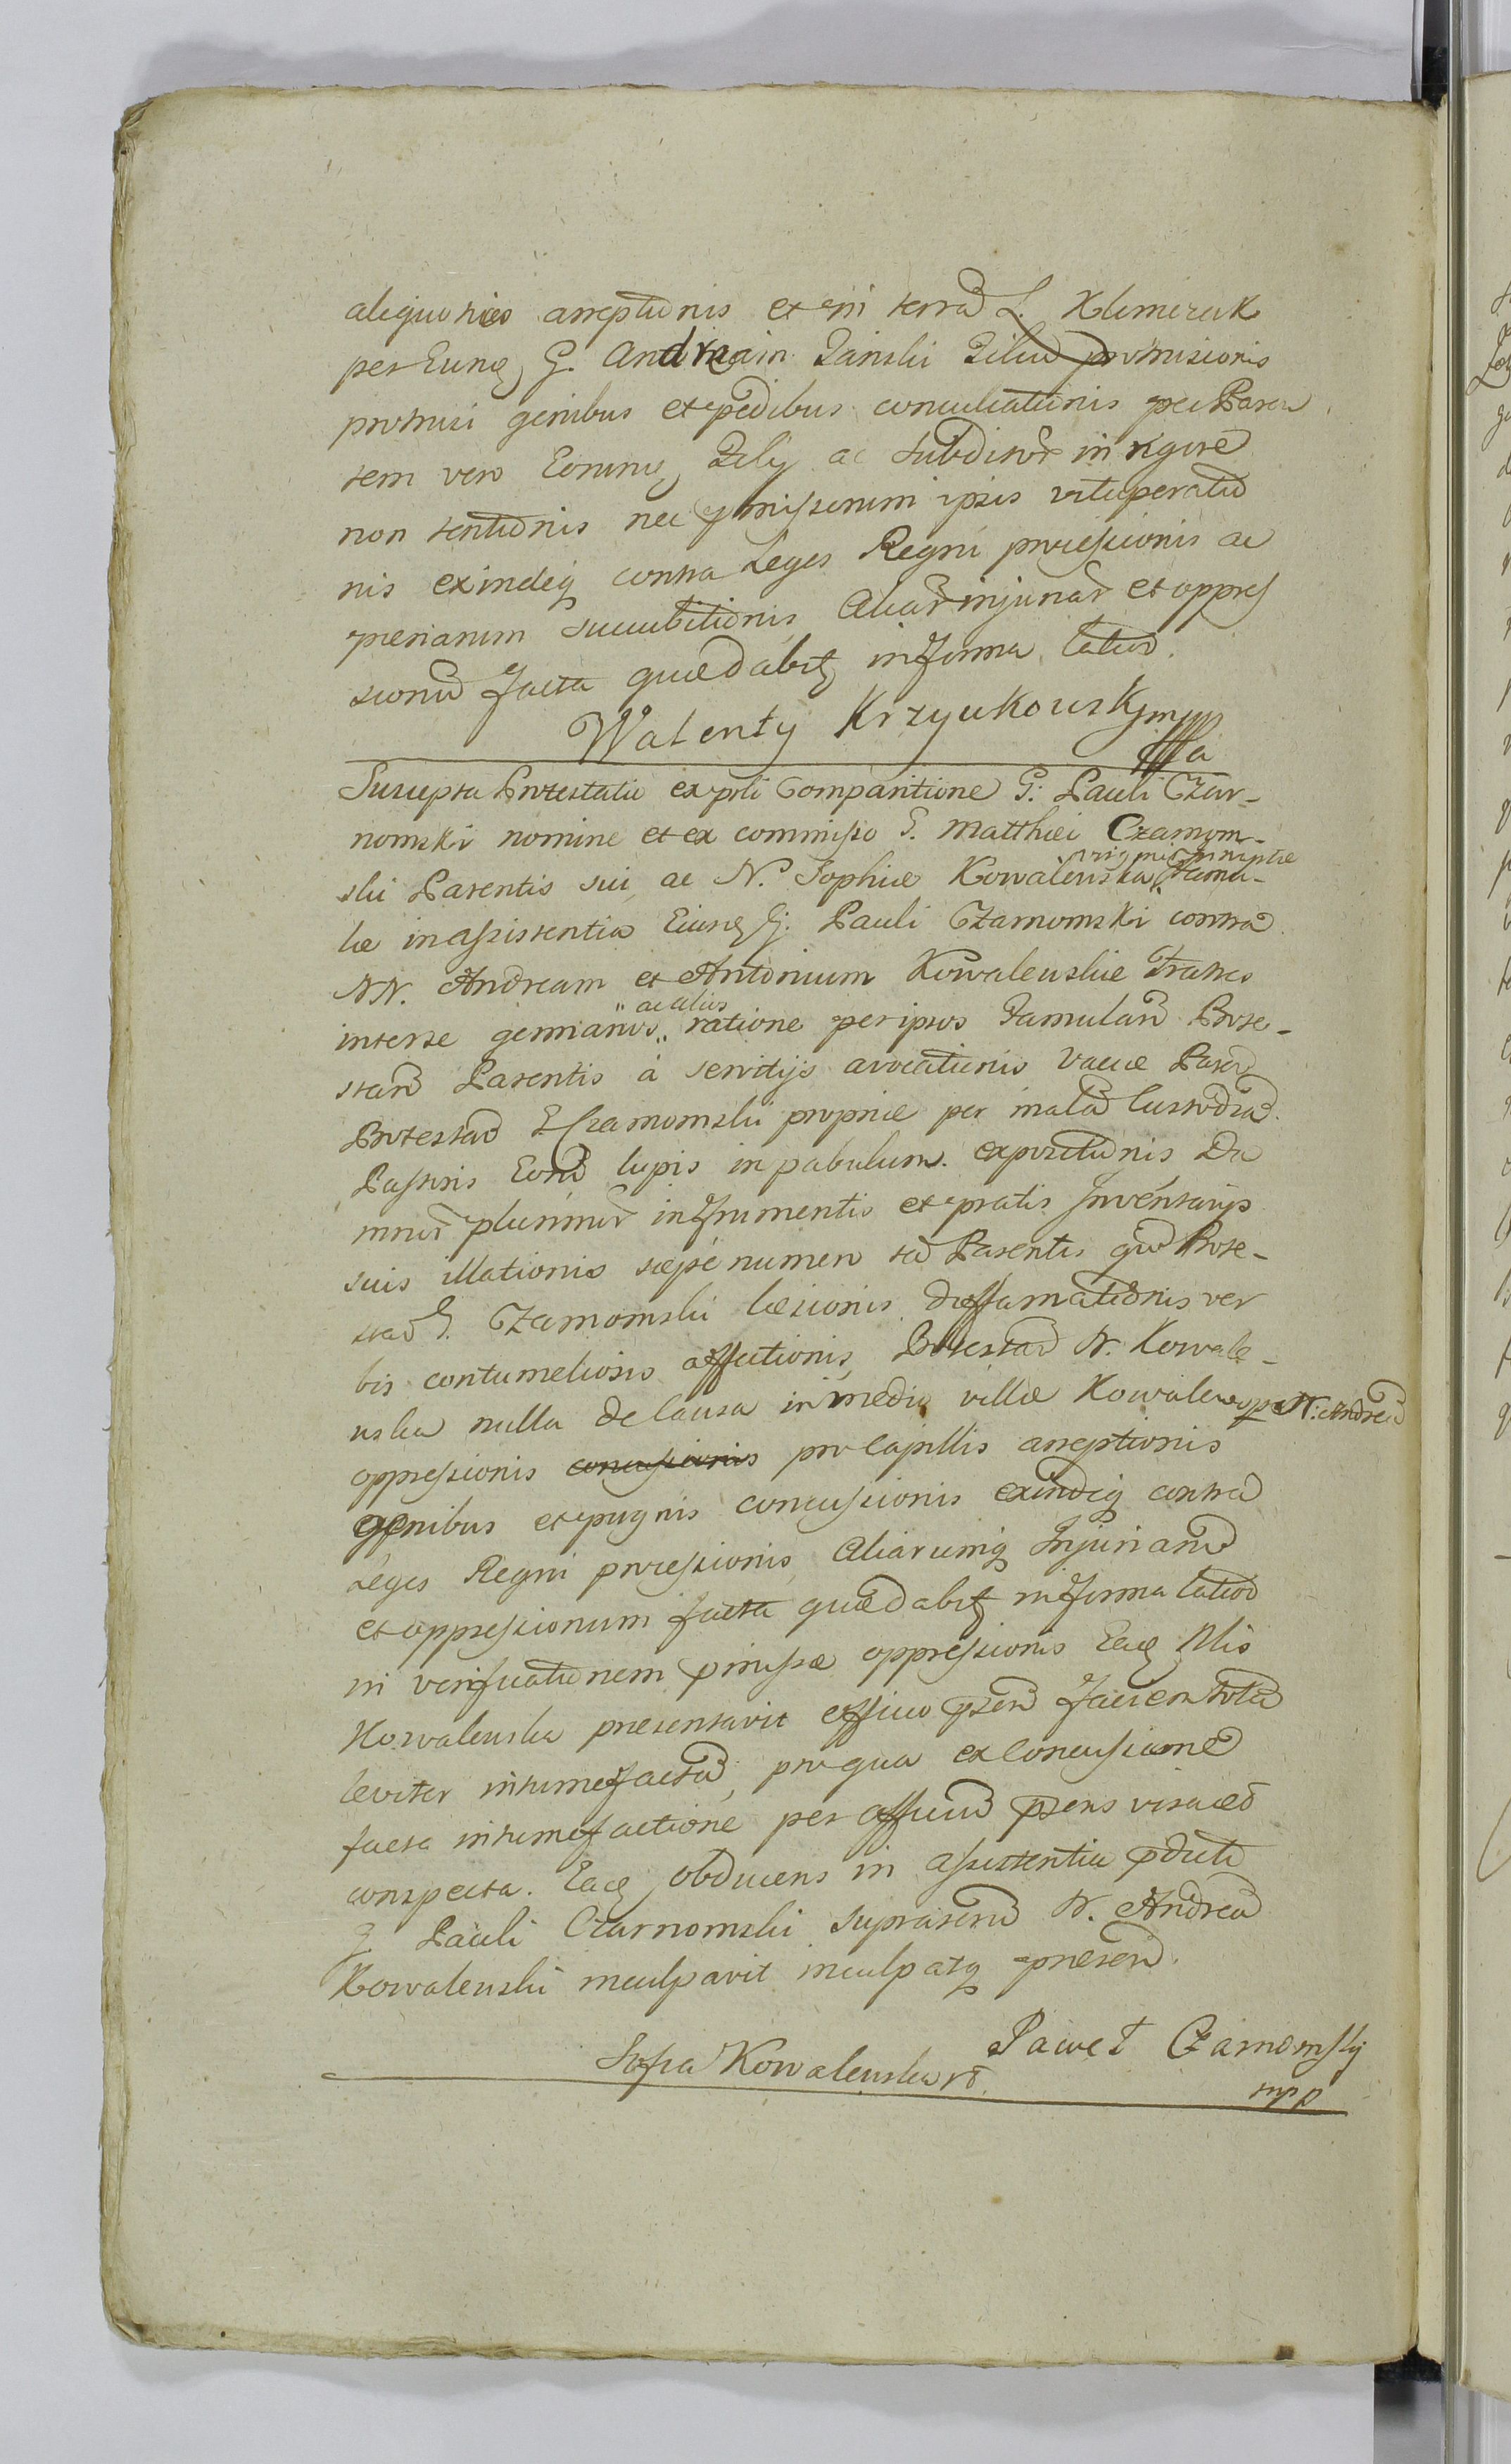 aliquoties arreptionis et in terrā L. Klimczuk
per Eunq̃ G. Andream Zanski Filiū promisionis
promisi genibus et pedibus conculcationis per Paren
tem vero Eorunq̃ Filij ac subditor̃ in rigore
non tentionis nec pmissorum ipsis vituperatio
nis exindeq̃ contra Leges Regni processionis ac
penarum succubitionis Aliar̃ injuriar̃ et oppres
sionū facta quæ dabitʒ in forma latior̃.
Walenty Krzyukowsky mpp
Suscepta Protestatio ex psli Comparitione G: Pauli Czar-
nomski nomine et ex commisso G. Matthiei Czarnom-
ski Parentis sui, ac N. Sophiæ Kowalewska virginis innuptæ Famu-
læ in assistentia Eiusq̃ G. Pauli Czarnomski contra
NN. Andream et Antonium Kowalewskie Fratres
interse germanos „ac alios„ ratione per ipsos Famular̃ Prote-
stan̄ Parentis à servitijs avocationis Vaccæ Paren̄
Protestan̄ G Czarnomski propriæ per malā Custodiā
Pastoris Eorū lupis in pabulum expositionis Da
mnor̃ plurimor̃ in frumentis et pratis Inventarijs
suis illationis sæpe numero tā Parentis quā Prote-
stan̄ G. Czarnomski læsionis diffamationis ver
bis contumeliosis affectionis, Protestan̄ N. Kowale-
wska nulla de causa in medio villæ Kowalewo per N: Andreā
oppressionis concussionis pro Capillis arreptionis
genibus et pugnis concussionis exindeq̃ contra
Leges Regni processionis, Aliarumq̃ Injuriarū
et oppressionum facta quæ dabitʒ in forma latior̃
in verificationem pmissæ oppressionis Eaq̃ Nlis
Kowalewska presentavit officio psen̄ faciem totā
leviter intumefactā, pro qua ex Concussione
facta intumefactione per officiū psens visa ēt
conspecta. Eaq̃ obducens in assistentia pdicti
G Pauli Czarnomski suprascrū N. Andreā
Kowalewski inculpavit inculpatq̃ presen̄.
Paweł Czarnomsky
Sofia Kowalewska
mpp